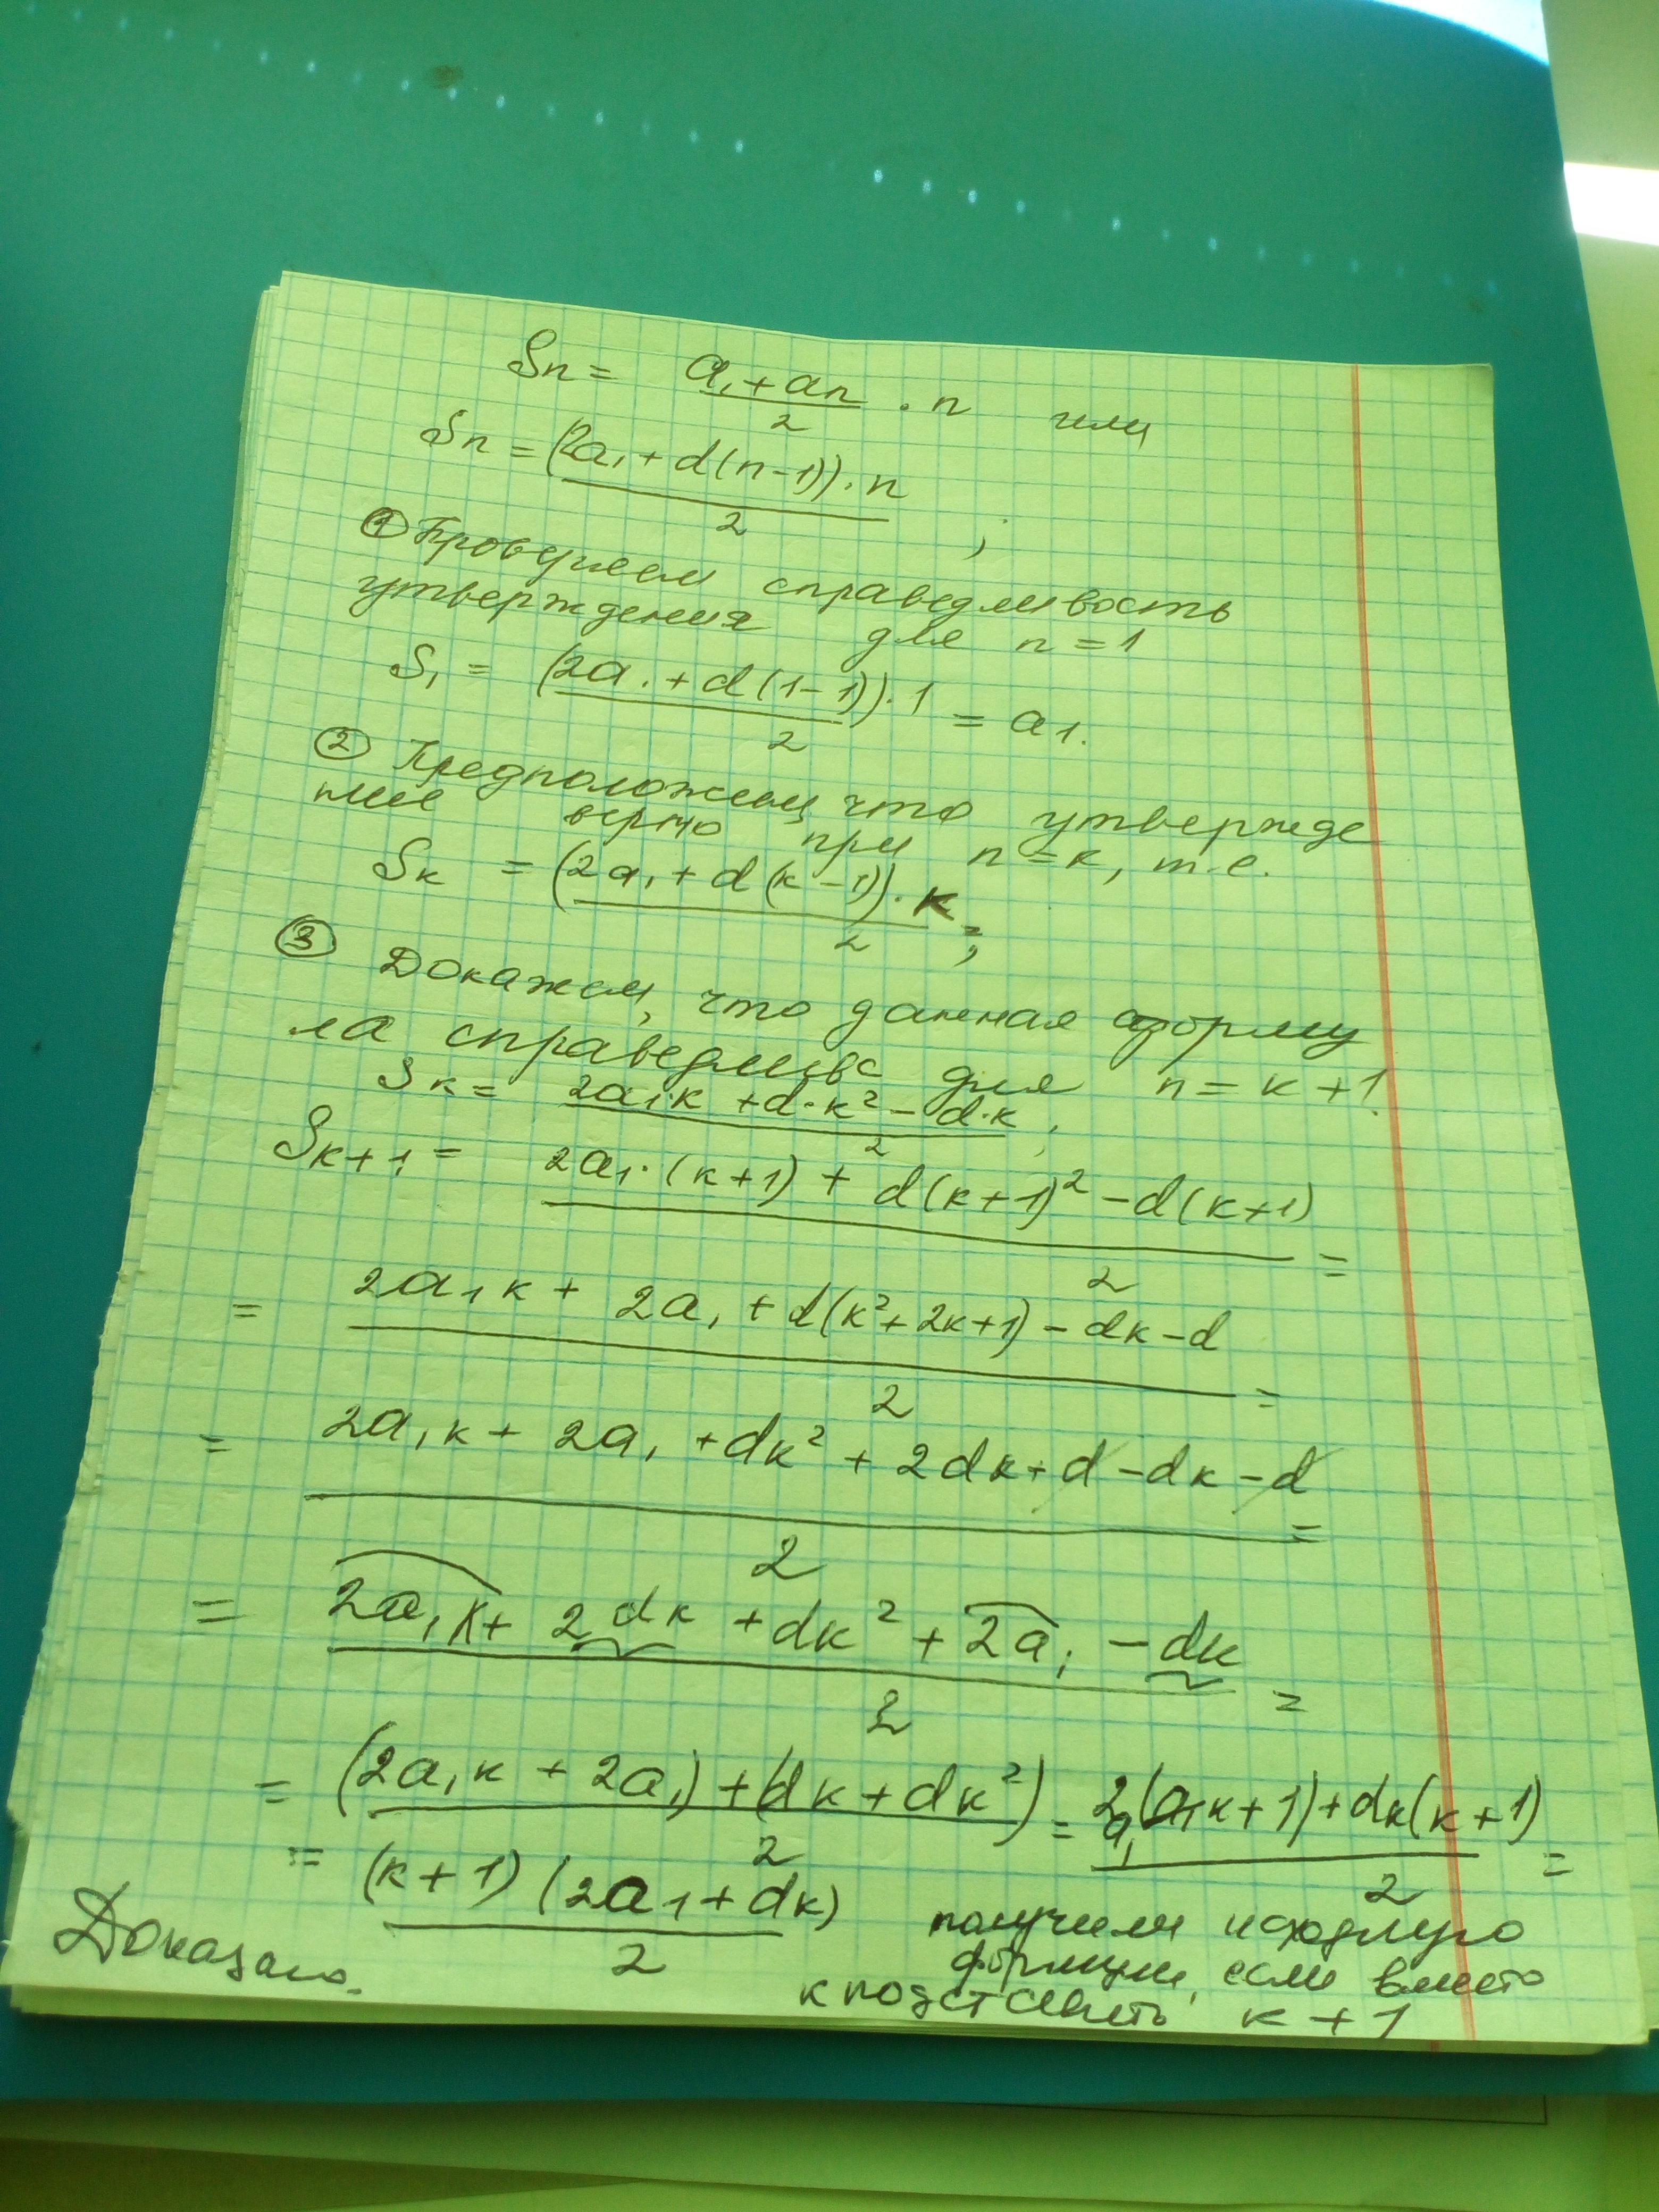 Sn = (a₁ + an)/2 · n или
Sn = (2a₁ + d(n-1))·n / 2 ;
① Проверяем справедливость
утверждения для n = 1
S₁ = (2a₁ + d(1-1))·1 / 2 = a₁.
② Предположим, что утвержде
ние верно при n = к, т.е.
Sк = (2a₁ + d(к-1))·к / 2 ;
③ Докажем, что данная форму
ла справедлива для n = к + 1.
Sк = (2a₁·к + d·к² - d·к) / 2 ;
Sк+1 = (2a₁·(к+1) + d(к+1)² - d(к+1)) / 2 =
= (2a₁к + 2a₁ + d(к² + 2к + 1) - dк - d) / 2 =
= (2a₁к + 2a₁ + dк² + 2dк + d - dк - d) / 2 =
= (2a₁к + 2dк + dк² + 2a₁ - dк) / 2 =
= ((2a₁к + 2a₁) + (dк + dк²)) / 2 = (2a₁(к+1) + dк(к+1)) / 2 =
= (к+1)(2a₁ + dк) / 2 получили исходную
формулу, если вместо
к подставить к + 1
Доказано.